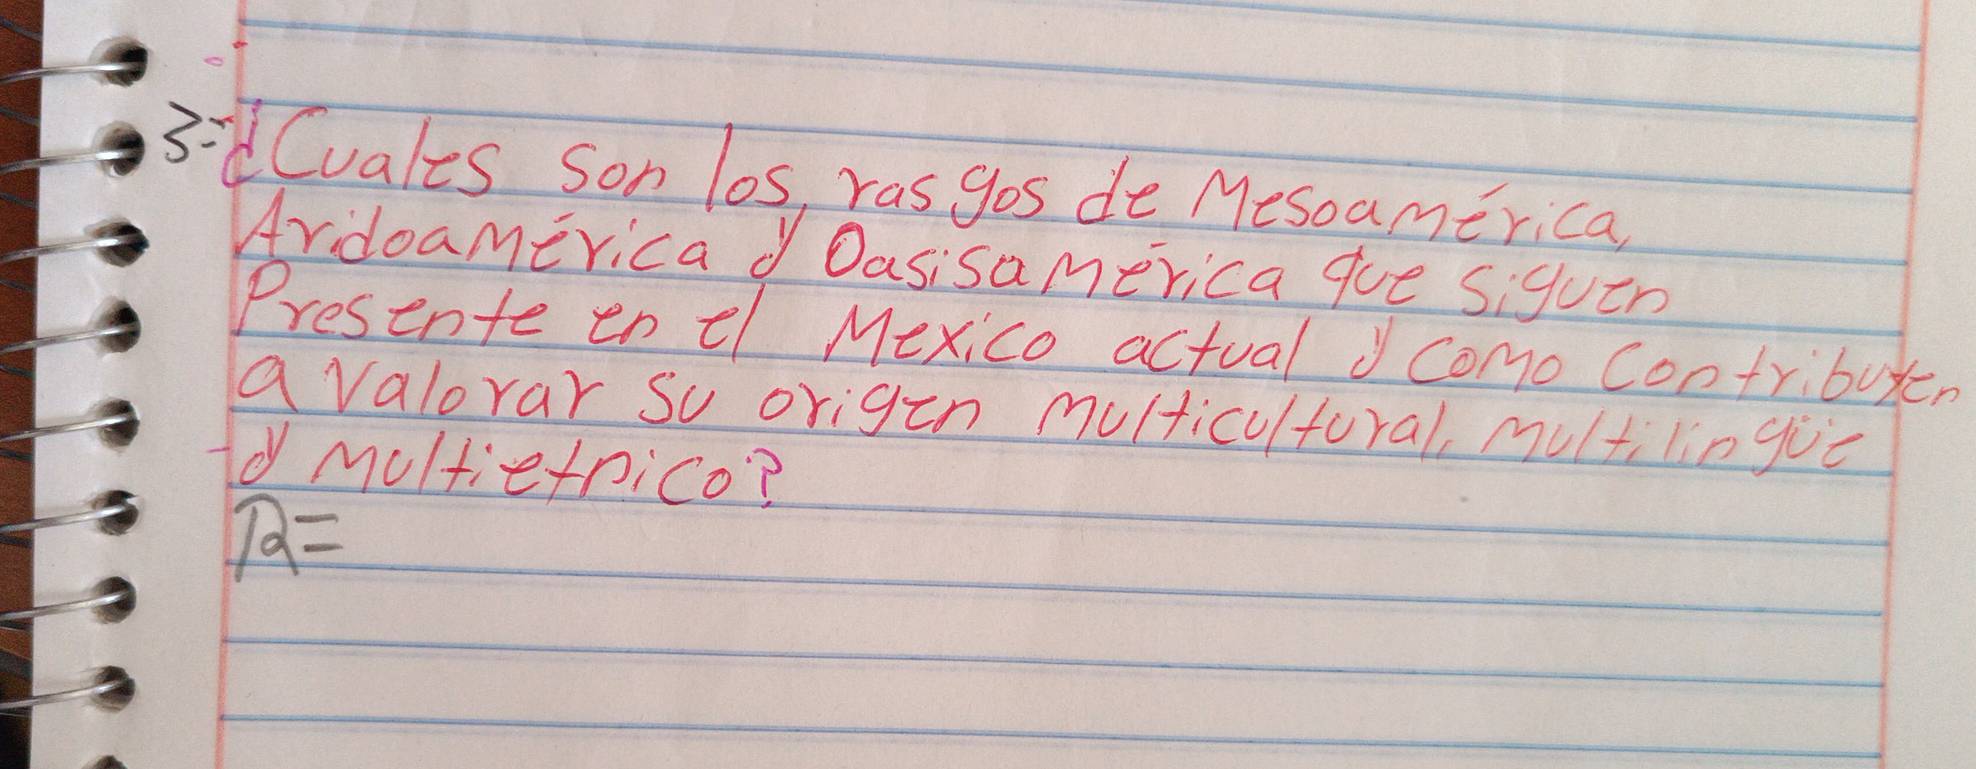 3=¿Cuales son los rasgos de Mesoamérica,
Aridoamérica y Oasisamérica que siguen
Presente en el Mexico actual y como contribuyen
a valorar su origen multicultural, multilingüe
y multietnico?
R=